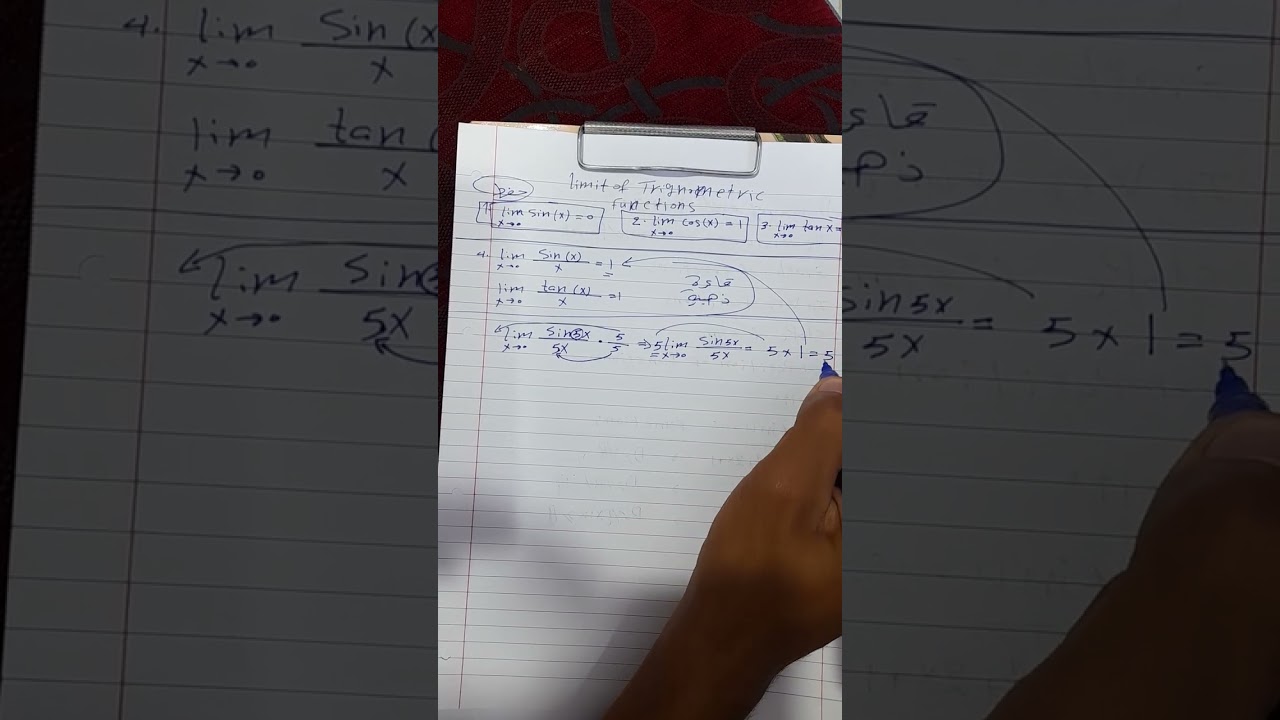 limit of Trignometric
functions
1. lim x→0 sin(x) = 0   2. lim x→0 cos(x) = 1   3. lim x→0 tan x =
4. lim x→0 Sin(x)/x = 1
lim x→0 tan(x)/x = 1
lim x→0 Sin5x/5x · 5/5 ⇒ 5 lim x→0 Sin5x/5x = 5 × 1 = 5